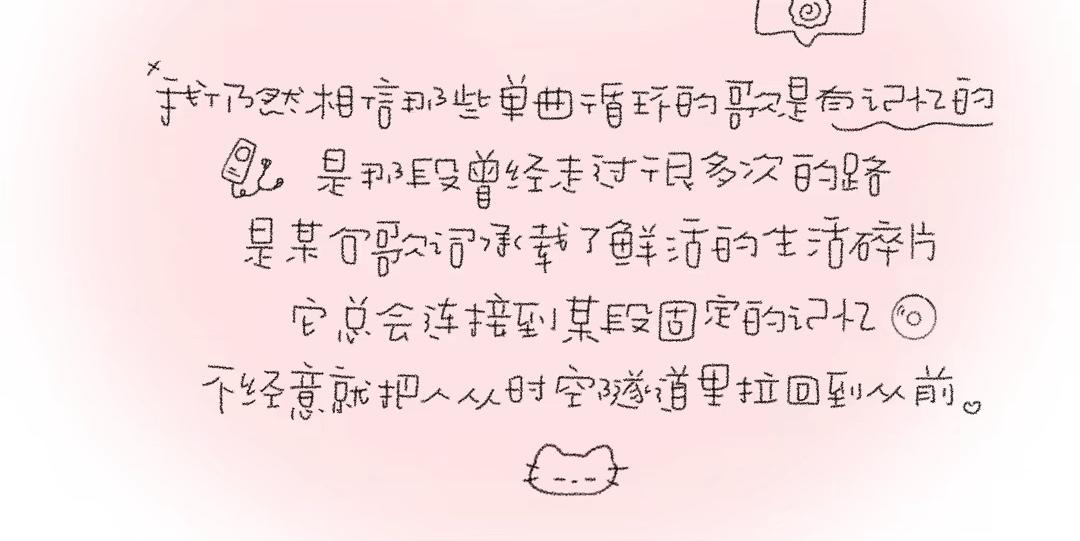 我仍然相信那些单曲循环的歌是有记忆的
是那段曾经走过很多次的路
是某句歌词承载了鲜活的生活碎片
它总会连接到某段固定的记忆
不经意就把人从时空隧道里拉回到从前。